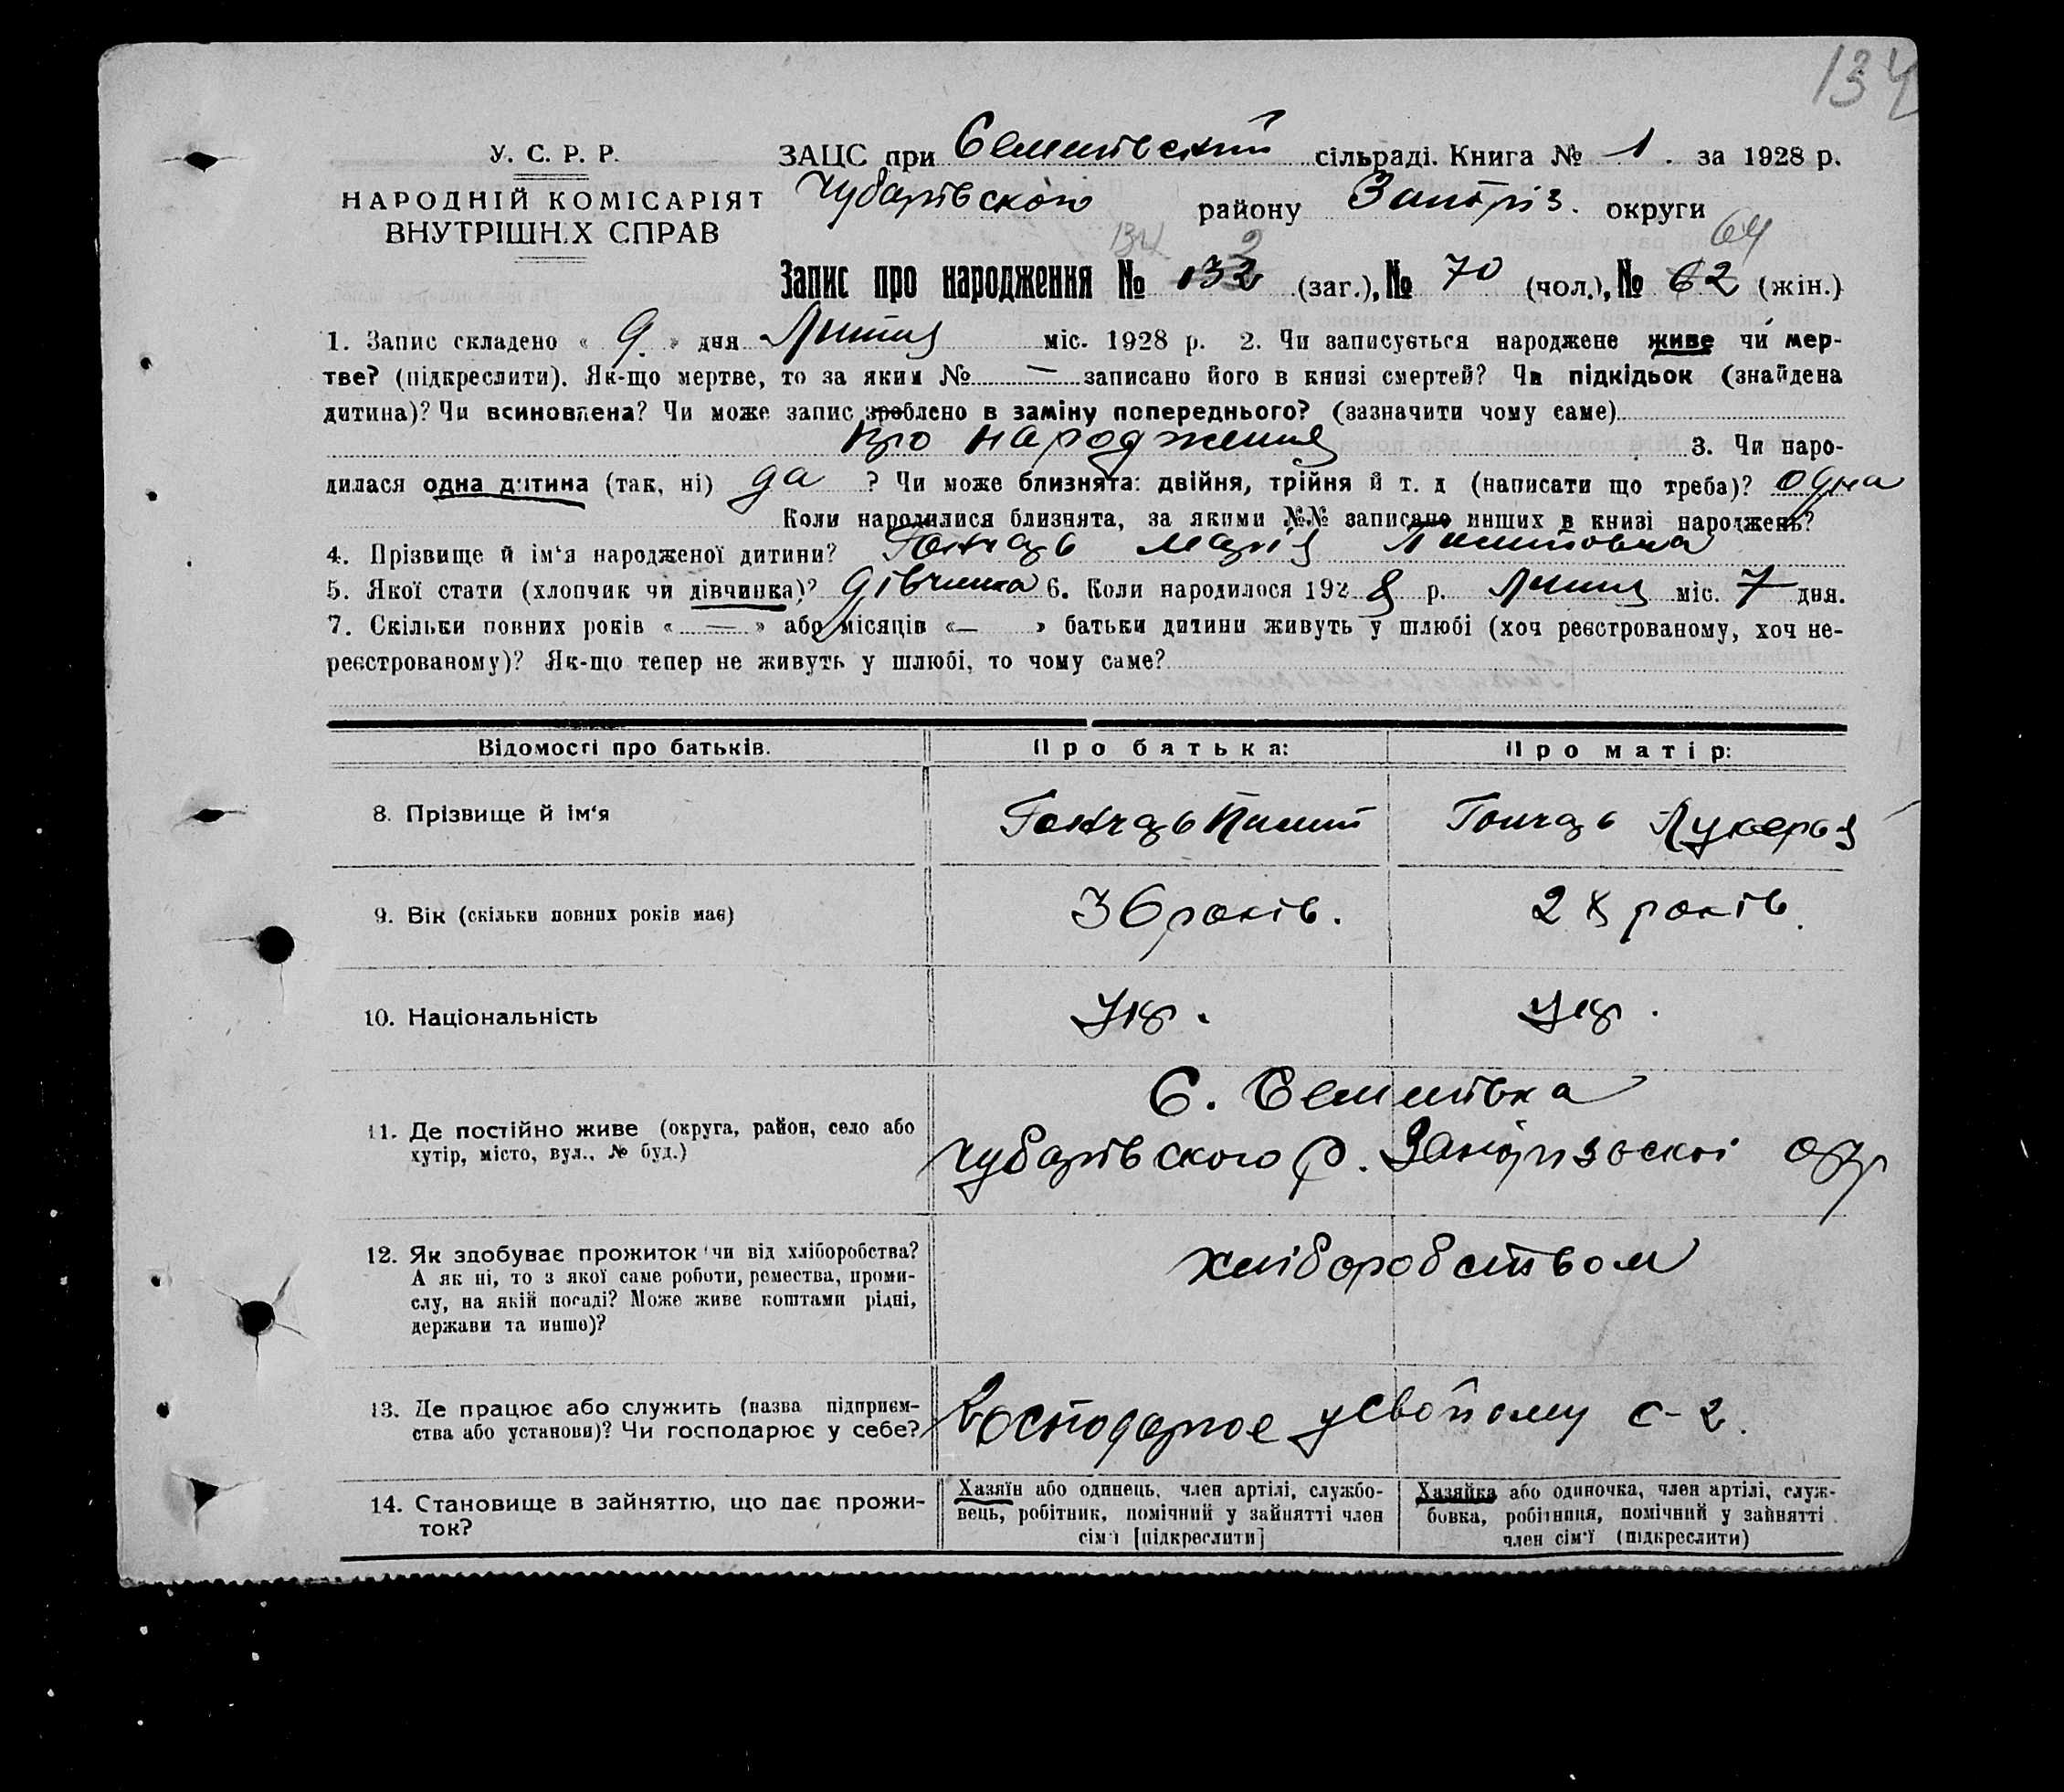 134
У. С. Р. Р.
НАРОДНІЙ КОМІСАРІЯТ
ВНУТРІШН.Х СПРАВ
ЗАЦС при Семенівский сільраді. Книга № 1. за 1928 р.
Чубарівского району Запоріз. округи
134 2 64
Запис про народження № 132 (заг.), № 70 (чол.), № 62 (жін.)
1. Запис складено « 9. » дня Липня міс. 1928 р. 2. Чи записується народжене живе чи мер-
тве? (підкреслити). Як-що мертве, то за яким № — записано його в книзі смертей? Чи підкідьок (знайдена
дитина)? Чи всиновлена? Чи може запис зроблено в заміну попереднього? (зазначити чому саме)
про народження 3. Чи наро-
дилася одна дитина (так, ні) да ? Чи може близнята: двійня, трійня й т. д (написати що треба)? одна
Коли народилися близнята, за якими №№ записано инших в книзі народжень?
4. Прізвище й ім‘я народженої дитини? Гончарь Марія
5. Якої стати (хлопчик чи дівчинка)? дівчина 6. Коли народилося 1928 р. Липня міс. 7 дня.
7. Скільки повних років « — » або місяців «— » батьки дитини живуть у шлюбі (хоч реєстрованому, хоч не-
реєстрованому)? Як-що тепер не живуть у шлюбі, то чому саме?
Відомості про батьків. Про батька: Про матір:
8. Прізвище й ім‘я Гончарь Гончарь Лукерья
9. Вік (скільки повних років має) 36 років. 28 років.
10. Національність Укр. Укр.
11. Де постійно живе (округа, район, село або
хутір, місто, вул., № буд.)
С. Семенівка
Чубарівского р. Запорізоскоі окр
12. Як здобуває прожиток чи від хліборобства?
А як ні, то з якої саме роботи, ремества, проми-
слу, на якій посаді? Може живе коштами рідні,
держави та инше)?
хліборобством
13. Де працює або служить (назва підприєм-
ства або установи)? Чи господарює у себе?
Господарює у свойому с-г.
14. Становище в зайняттю, що дає прожи-
ток?
Хазяїн або одинець, член артілі, службо-
вець, робітник, помічний у зайнятті член
сім‘ї [підкреслити]
Хазяйка або одиночка, член артілі, служ-
бовка, робітниця, помічний у зайнятті
член сім‘ї (підкреслити)